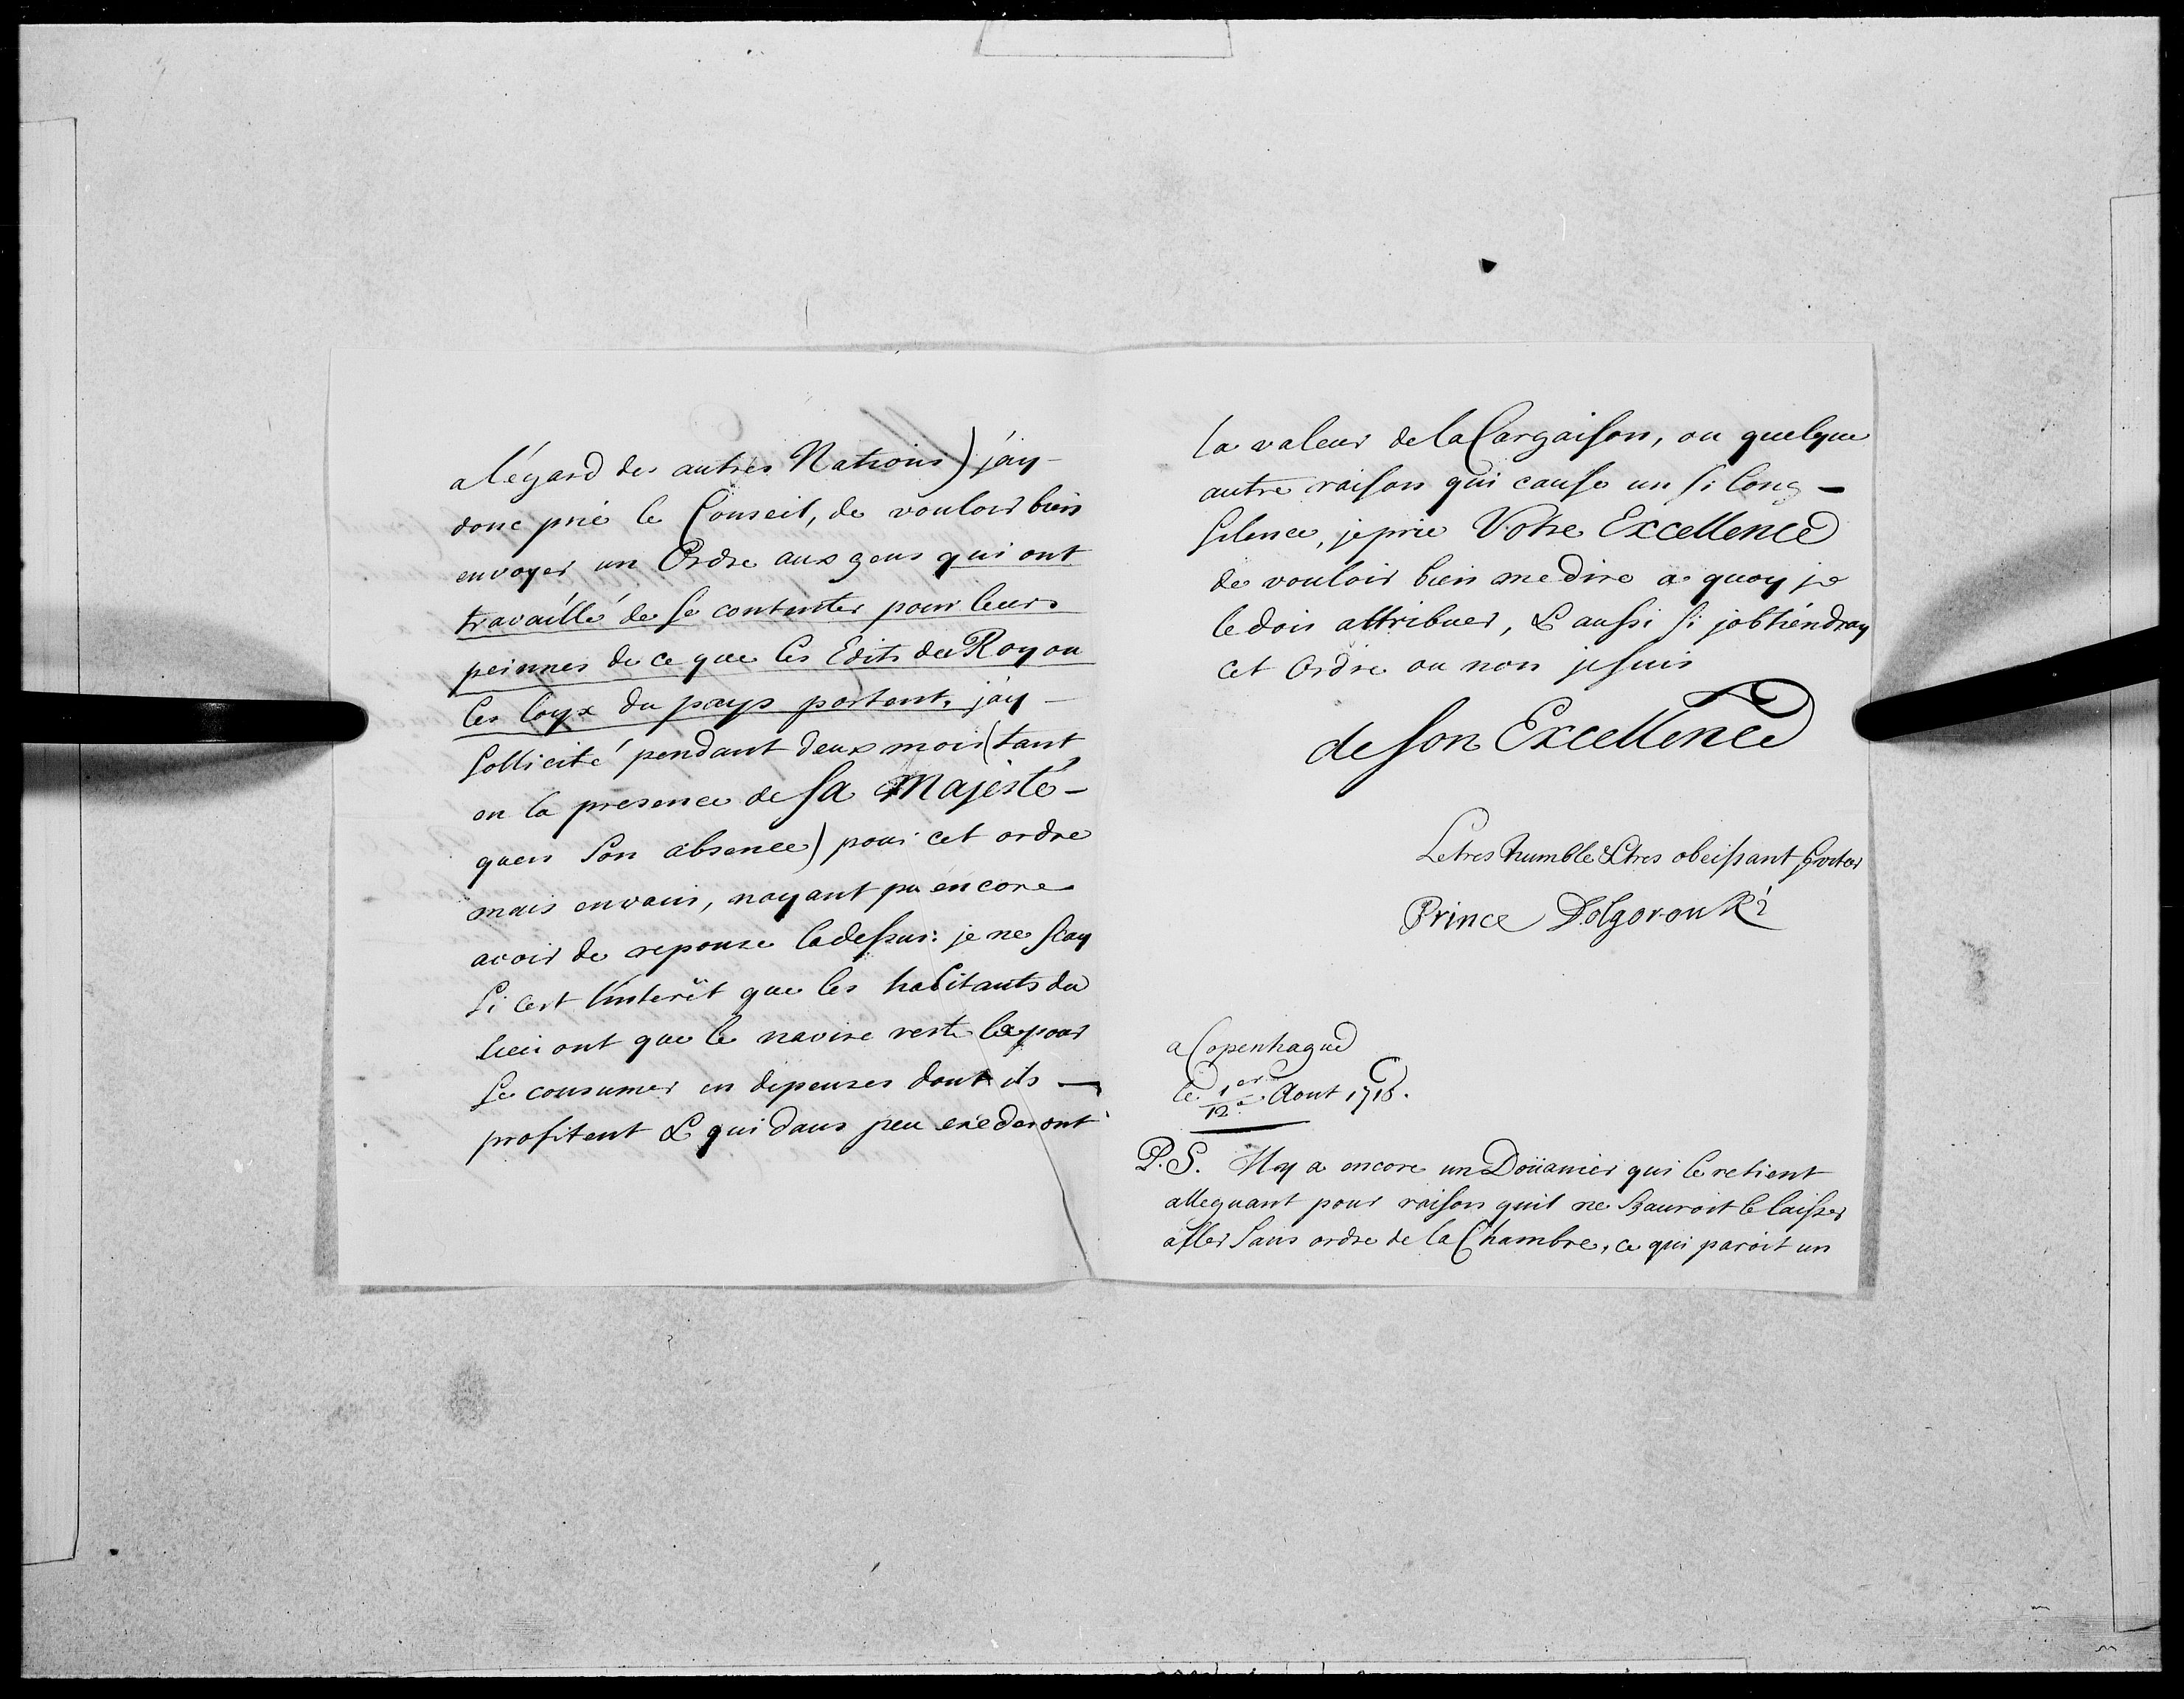 a l'égard des autres Nations) j'ay
donc prie le Conseil, de vouloir bien
envoyer un Ordre aux gens qui ont
travaillé de se contenter pour leurs
peinnes de ce que les Edits du Roy ou
les loyx du pays portent, j'ay
sollicité pendant deux mois (tant
en la presence de sa Majesté
quen son absence) pour cet ordre
mais envain, nayant pu encore
avoir de reponse ladessus: je ne scay
si cest l'interêt que les habitants du
lieu ont que le navire reste la pour
se consumer en depenses dont ils
profitent & qui dans peu exederont
la valeur de la Cargaison, ou quelque
autre raison qui cause un si long
silence, je prie Votre Excellence
de vouloir bien me dire a quoy je
le dois attribuer, & aussi si jobtiendray
cet Ordre ou non je suis
de son Excellence
Le tres humble & tres obeissant
Prince Dolgorouki
a Copenhague
le 1er/12e Aout 1718.
P.S. Il y a encore un Doüanier qui le retient
alleguant pour raison quil ne sauroit le laisser
aller sans ordre de la Chambre, ce qui paroit un